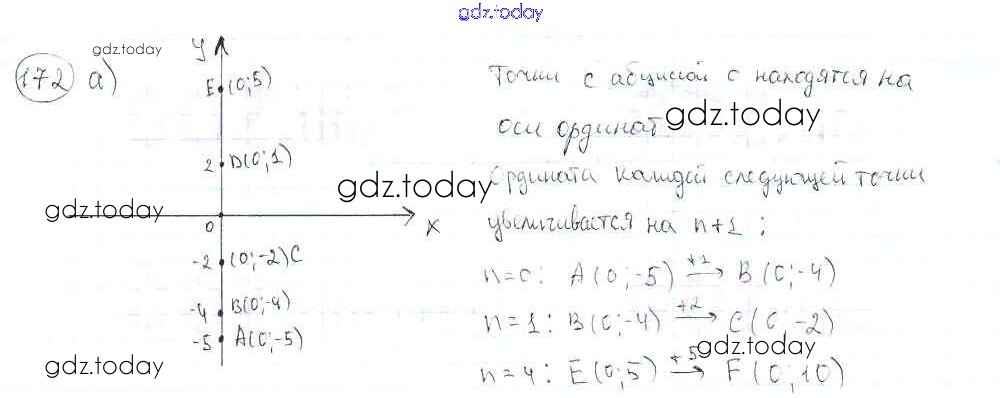 gdz.today
gdz.today
172 а) y
E (0;5)
2 D(0;1)
0 x
-2 (0;-2)C
-4 B(0;-4)
-5 A(0;-5)
Точки с абцисой 0 находятся на
оси ординат
gdz.today
Ордината каждой следующей точки
gdz.today
gdz.today
увеличивается на n+1;
n=0: A(0;-5) +1→ B(0;-4)
n=1: B(0;-4) +2→ C(0;-2)
gdz.today
n=4: E(0;5) +5→ F(0;10)
gdz.today